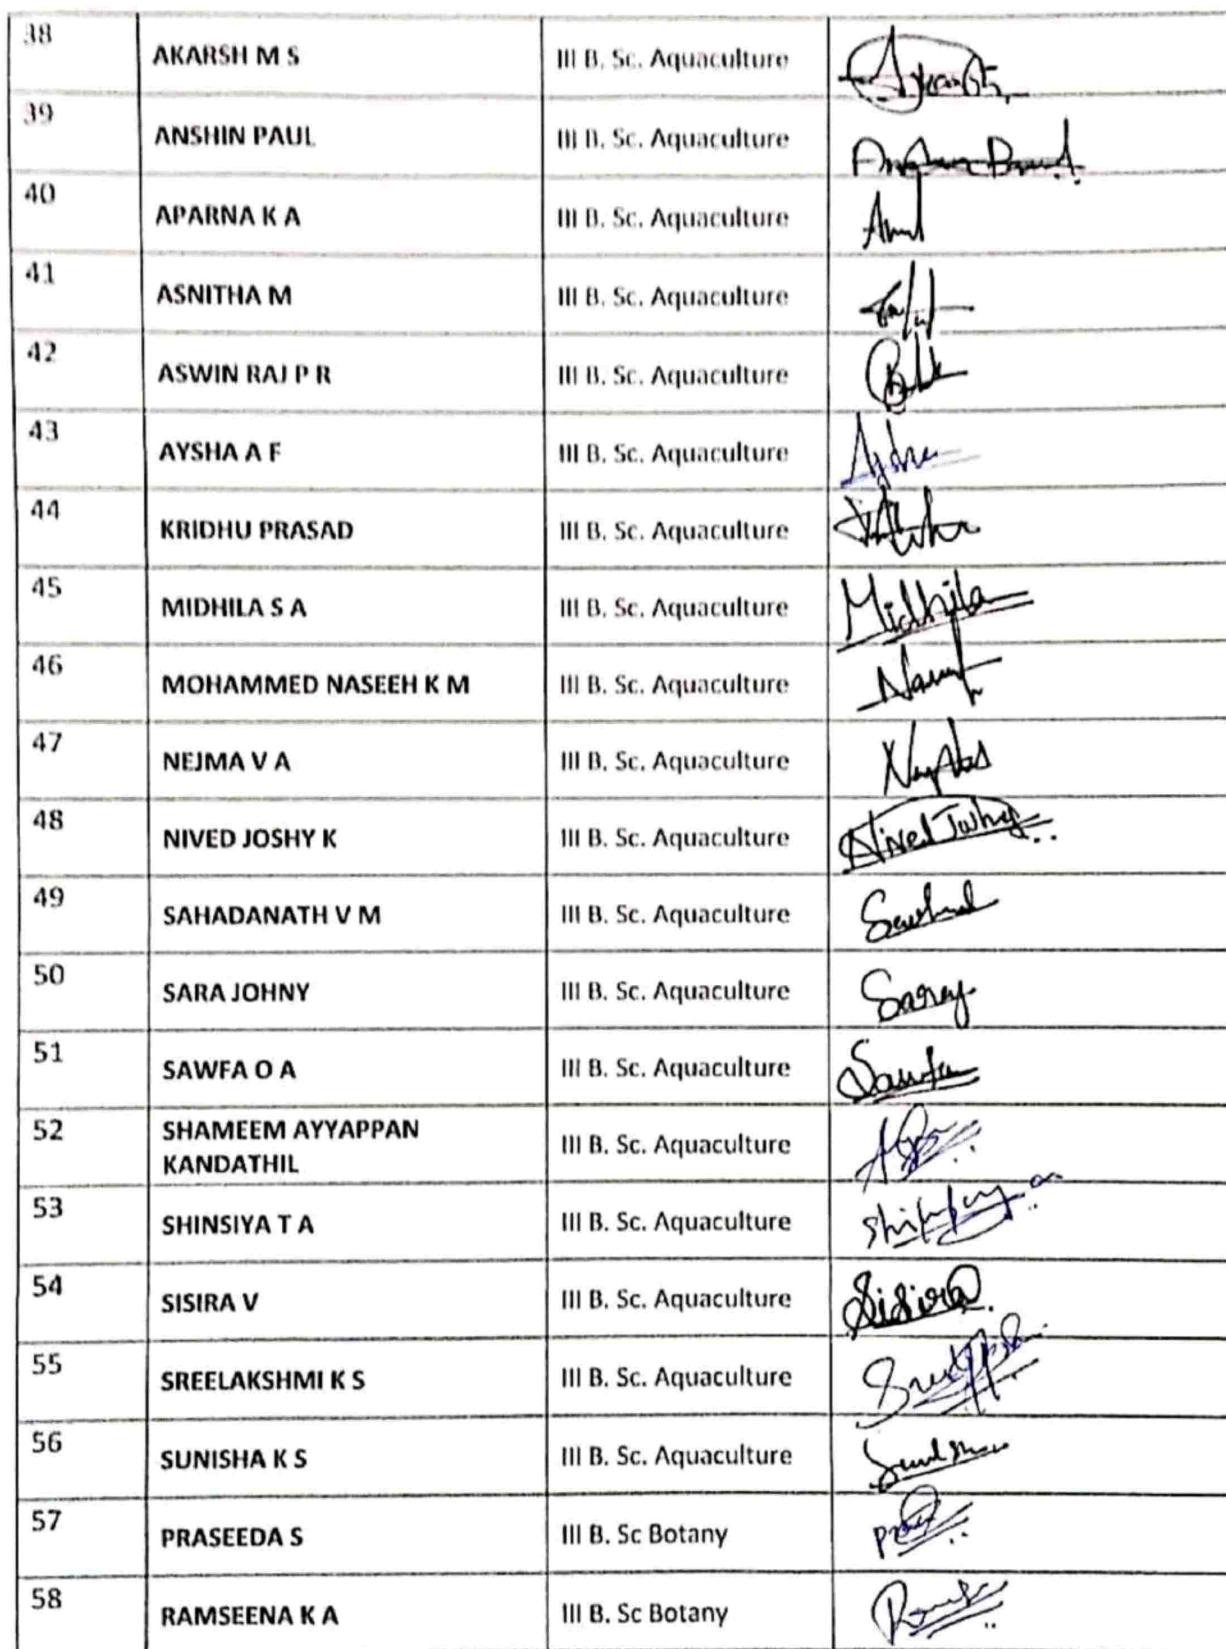 38 AKARSH M S III B. Sc. Aquaculture
39 ANSHIN PAUL III B. Sc. Aquaculture
40 APARNA K A III B. Sc. Aquaculture
41 ASNITHA M III B. Sc. Aquaculture
42 ASWIN RAJ P R III B. Sc. Aquaculture
43 AYSHA A F III B. Sc. Aquaculture
44 KRIDHU PRASAD III B. Sc. Aquaculture
45 MIDHILA S A III B. Sc. Aquaculture Midhila
46 MOHAMMED NASEEH K M III B. Sc. Aquaculture
47 NEJMA V A III B. Sc. Aquaculture
48 NIVED JOSHY K III B. Sc. Aquaculture Nived Joshy
49 SAHADANATH V M III B. Sc. Aquaculture
50 SARA JOHNY III B. Sc. Aquaculture
51 SAWFA O A III B. Sc. Aquaculture Sawfa
52 SHAMEEM AYYAPPAN
KANDATHIL III B. Sc. Aquaculture
53 SHINSIYA T A III B. Sc. Aquaculture
54 SISIRA V III B. Sc. Aquaculture Sisira
55 SREELAKSHMI K S III B. Sc. Aquaculture
56 SUNISHA K S III B. Sc. Aquaculture
57 PRASEEDA S III B. Sc Botany
58 RAMSEENA K A III B. Sc Botany